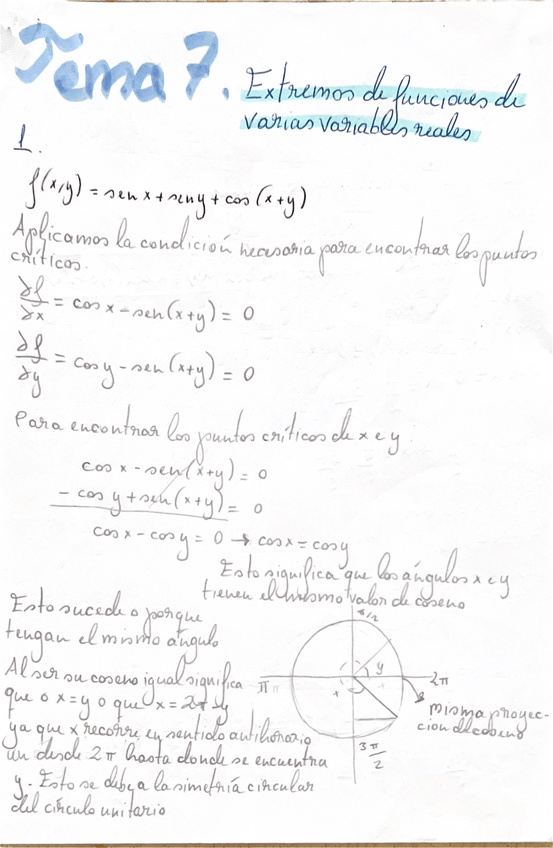 Tema 7.
Extremos de funciones de
varias variables reales
1.
f(x,y) = sen x + sen y + cos (x+y)
Aplicamos la condición necesaria para encontrar los puntos
críticos.
∂f/∂x = cos x - sen (x+y) = 0
∂f/∂y = cos y - sen (x+y) = 0
Para encontrar los puntos críticos de x e y
cos x - sen (x+y) = 0
- cos y + sen (x+y) = 0
cos x - cos y = 0 → cos x = cos y
Esto significa que los ángulos x e y
tienen el mismo valor de coseno
Esto sucede o porque
tengan el mismo ángulo
π/2
π
y
x
2π
3π/2
misma proyec-
cion de coseno
Al ser su coseno igual significa
que o x=y o que x = 2π-y
ya que x recorre en sentido antihorario
un desde 2π hasta donde se encuentra
y. Esto se debe a la simetría circular
del círculo unitario